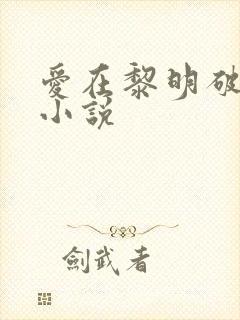 愛在黎明破
小說
劍武者